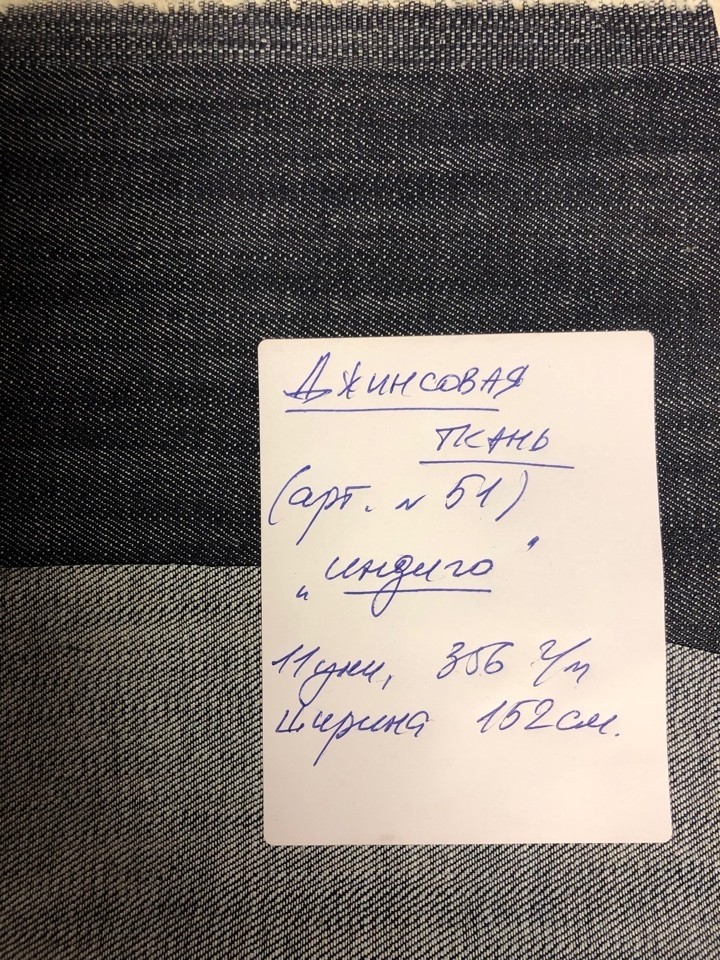 Джинсовая
ткань
(арт. № 51)
"Индиго"
11 унц, 356 г/м
ширина 152 см.